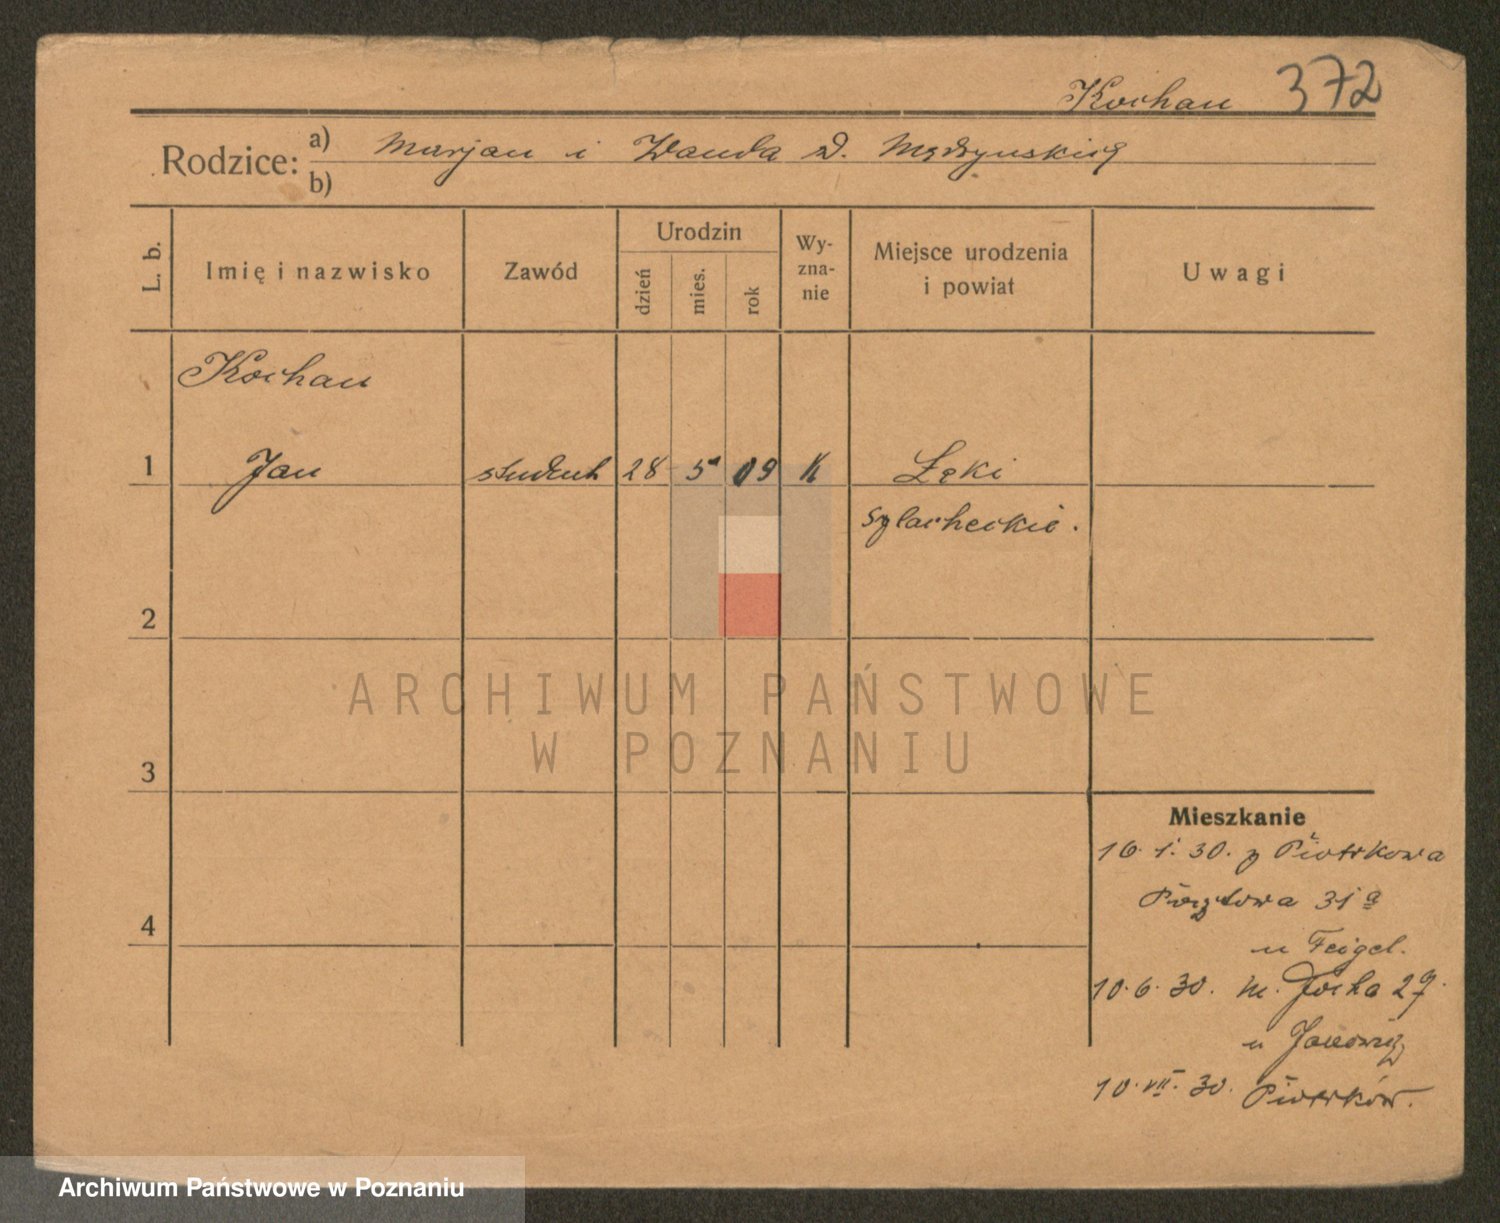 Kochan 372
Rodzice: a) Marjan i Wanda z d.
b)
L. b.
Imię i nazwisko
Zawód
Urodzin
dzień
mies.
rok
Wy-
zna-
nie
Miejsce urodzenia
i powiat
Uwagi
Kochan
1 Jan student 28 5 09 k Łęki
szlacheckie.
2
3
4
Mieszkanie
16. 1. 30. z Piotrkowa
Pocztowa 31 a
u Feigel.
10. 6. 30. m. Focha 27.
u
10. VII. 30. Piotrków.
ARCHIWUM PAŃSTWOWE
W POZNANIU
Archiwum Państwowe w Poznaniu